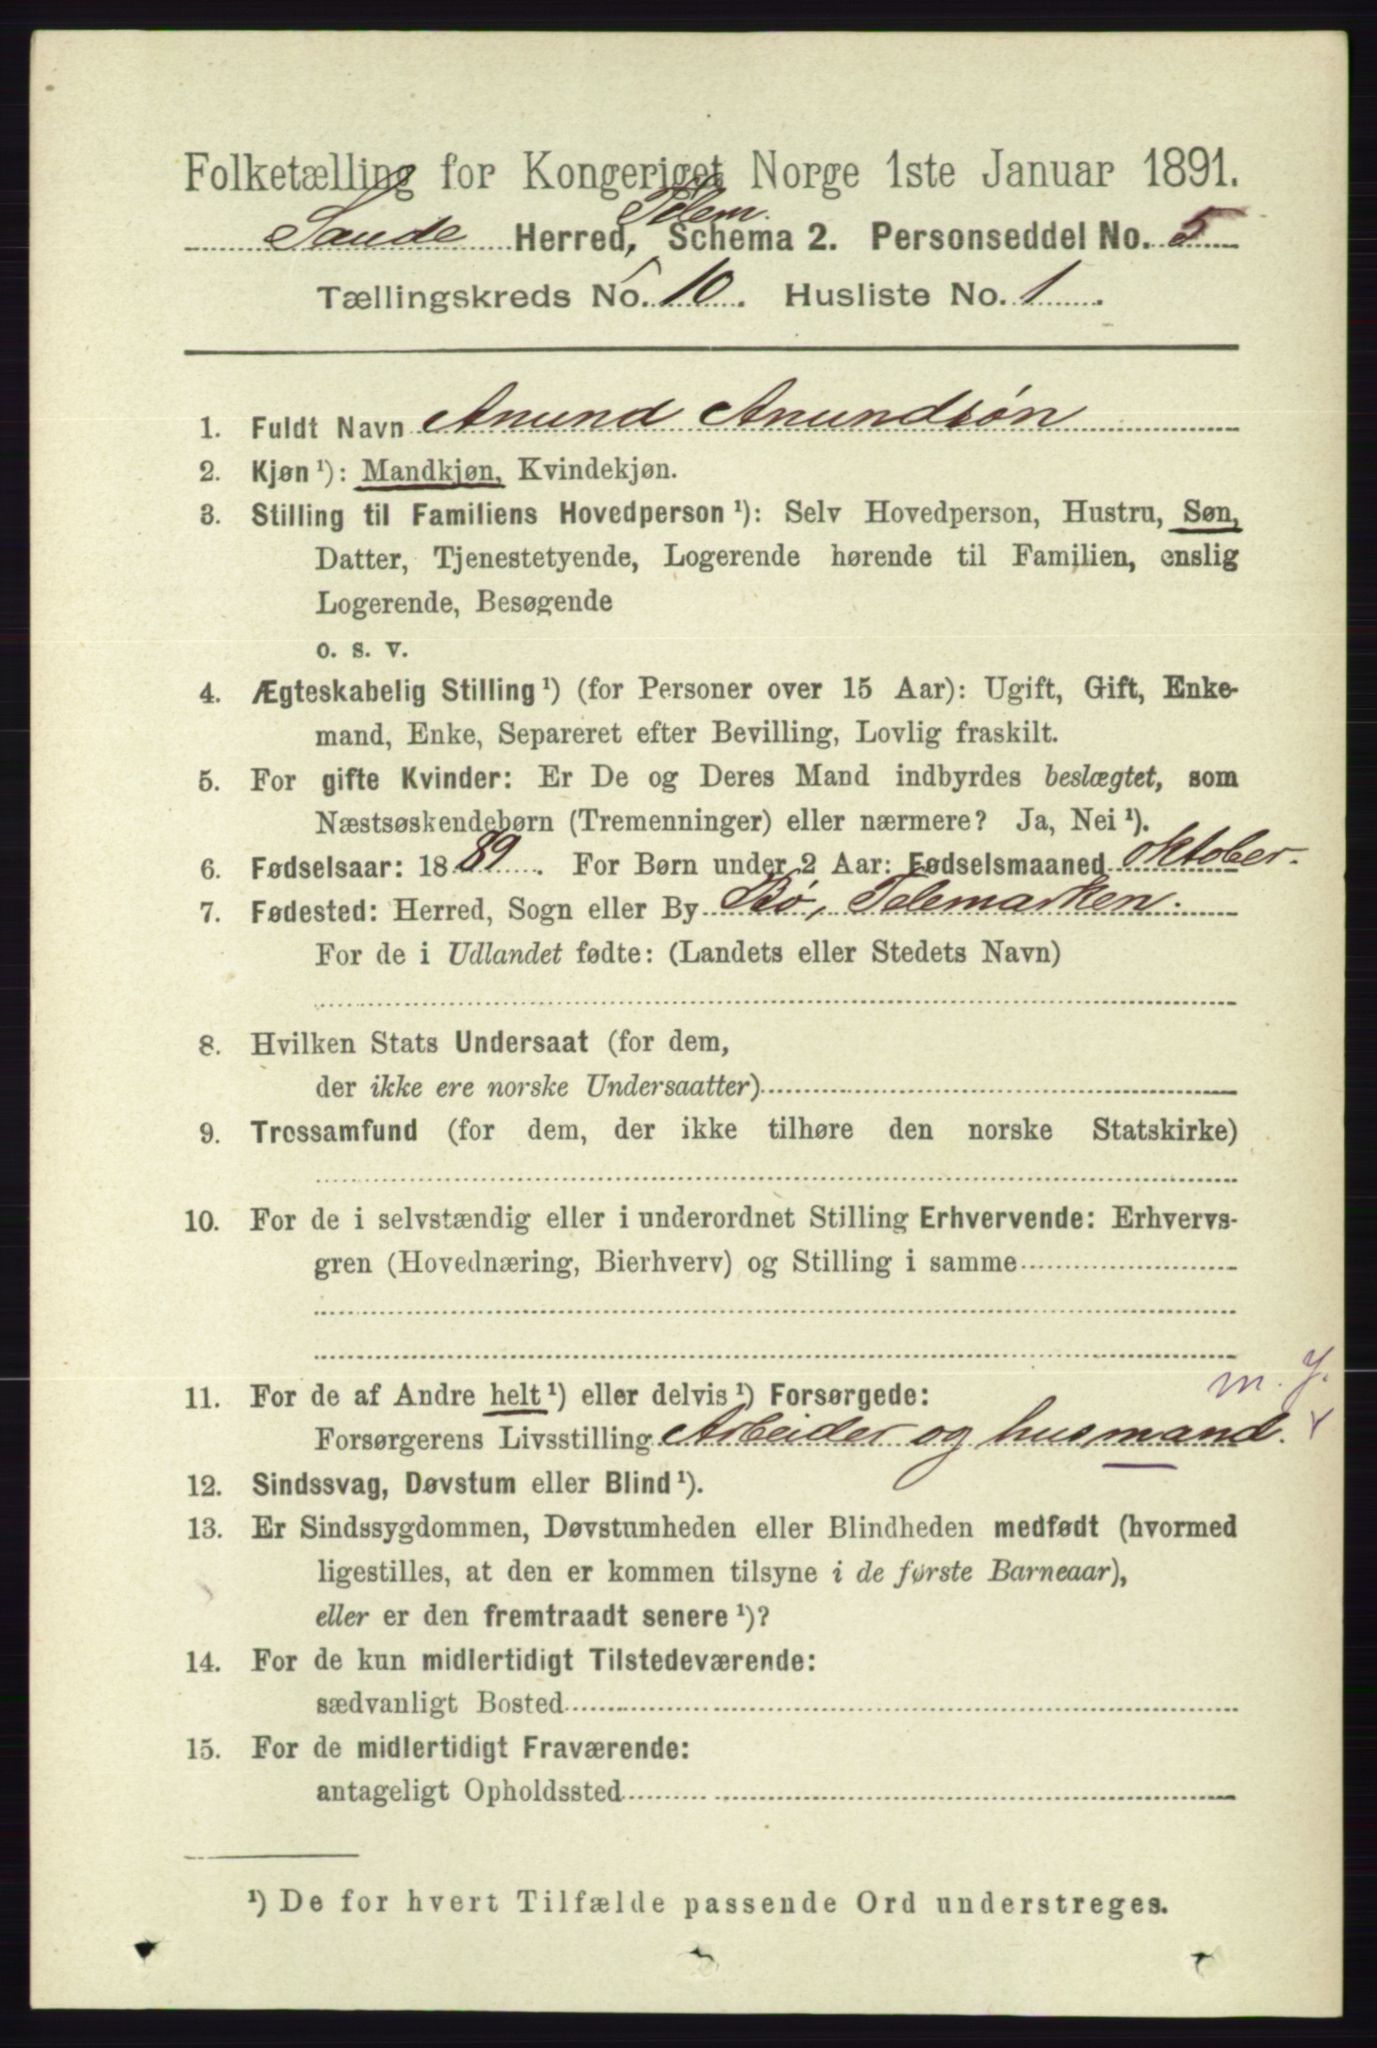 Folketælling for Kongeriget Norge 1ste Januar 1891.
Telem.
Saude Herred, Schema 2. Personseddel No. 5
Tællingskreds No. 10. Husliste No. 1.
1. Fuldt Navn Anund Anundsøn
2. Kjøn ¹): Mandkjøn, Kvindekjøn.
3. Stilling til Familiens Hovedperson ¹): Selv Hovedperson, Hustru, Søn,
Datter, Tjenestetyende, Logerende hørende til Familien, enslig
Logerende, Besøgende
o. s. v.
4. Ægteskabelig Stilling ¹) (for Personer over 15 Aar): Ugift, Gift, Enke-
mand, Enke, Separeret efter Bevilling, Lovlig fraskilt.
5. For gifte Kvinder: Er De og Deres Mand indbyrdes beslægtet, som
Næstsøskendebørn (Tremenninger) eller nærmere? Ja, Nei ¹).
6. Fødselsaar: 1889. For Børn under 2 Aar: Fødselsmaaned oktober.
7. Fødested: Herred, Sogn eller By Bø, Telemarken.
For de i Udlandet fødte: (Landets eller Stedets Navn)
8. Hvilken Stats Undersaat (for dem,
der ikke ere norske Undersaatter)
9. Trossamfund (for dem, der ikke tilhøre den norske Statskirke)
10. For de i selvstændig eller i underordnet Stilling Erhvervende: Erhvervs-
gren (Hovednæring, Bierhverv) og Stilling i samme
m. J.
11. For de af Andre helt ¹) eller delvis ¹) Forsørgede:
Forsørgerens Livsstilling Arbeider og husmand.
12. Sindssvag, Døvstum eller Blind ¹).
13. Er Sindssygdommen, Døvstumheden eller Blindheden medfødt (hvormed
ligestilles, at den er kommen tilsyne i de første Barneaar),
eller er den fremtraadt senere ¹)?
14. For de kun midlertidigt Tilstedeværende:
sædvanligt Bosted
15. For de midlertidigt Fraværende:
antageligt Opholdssted
¹) De for hvert Tilfælde passende Ord understreges.